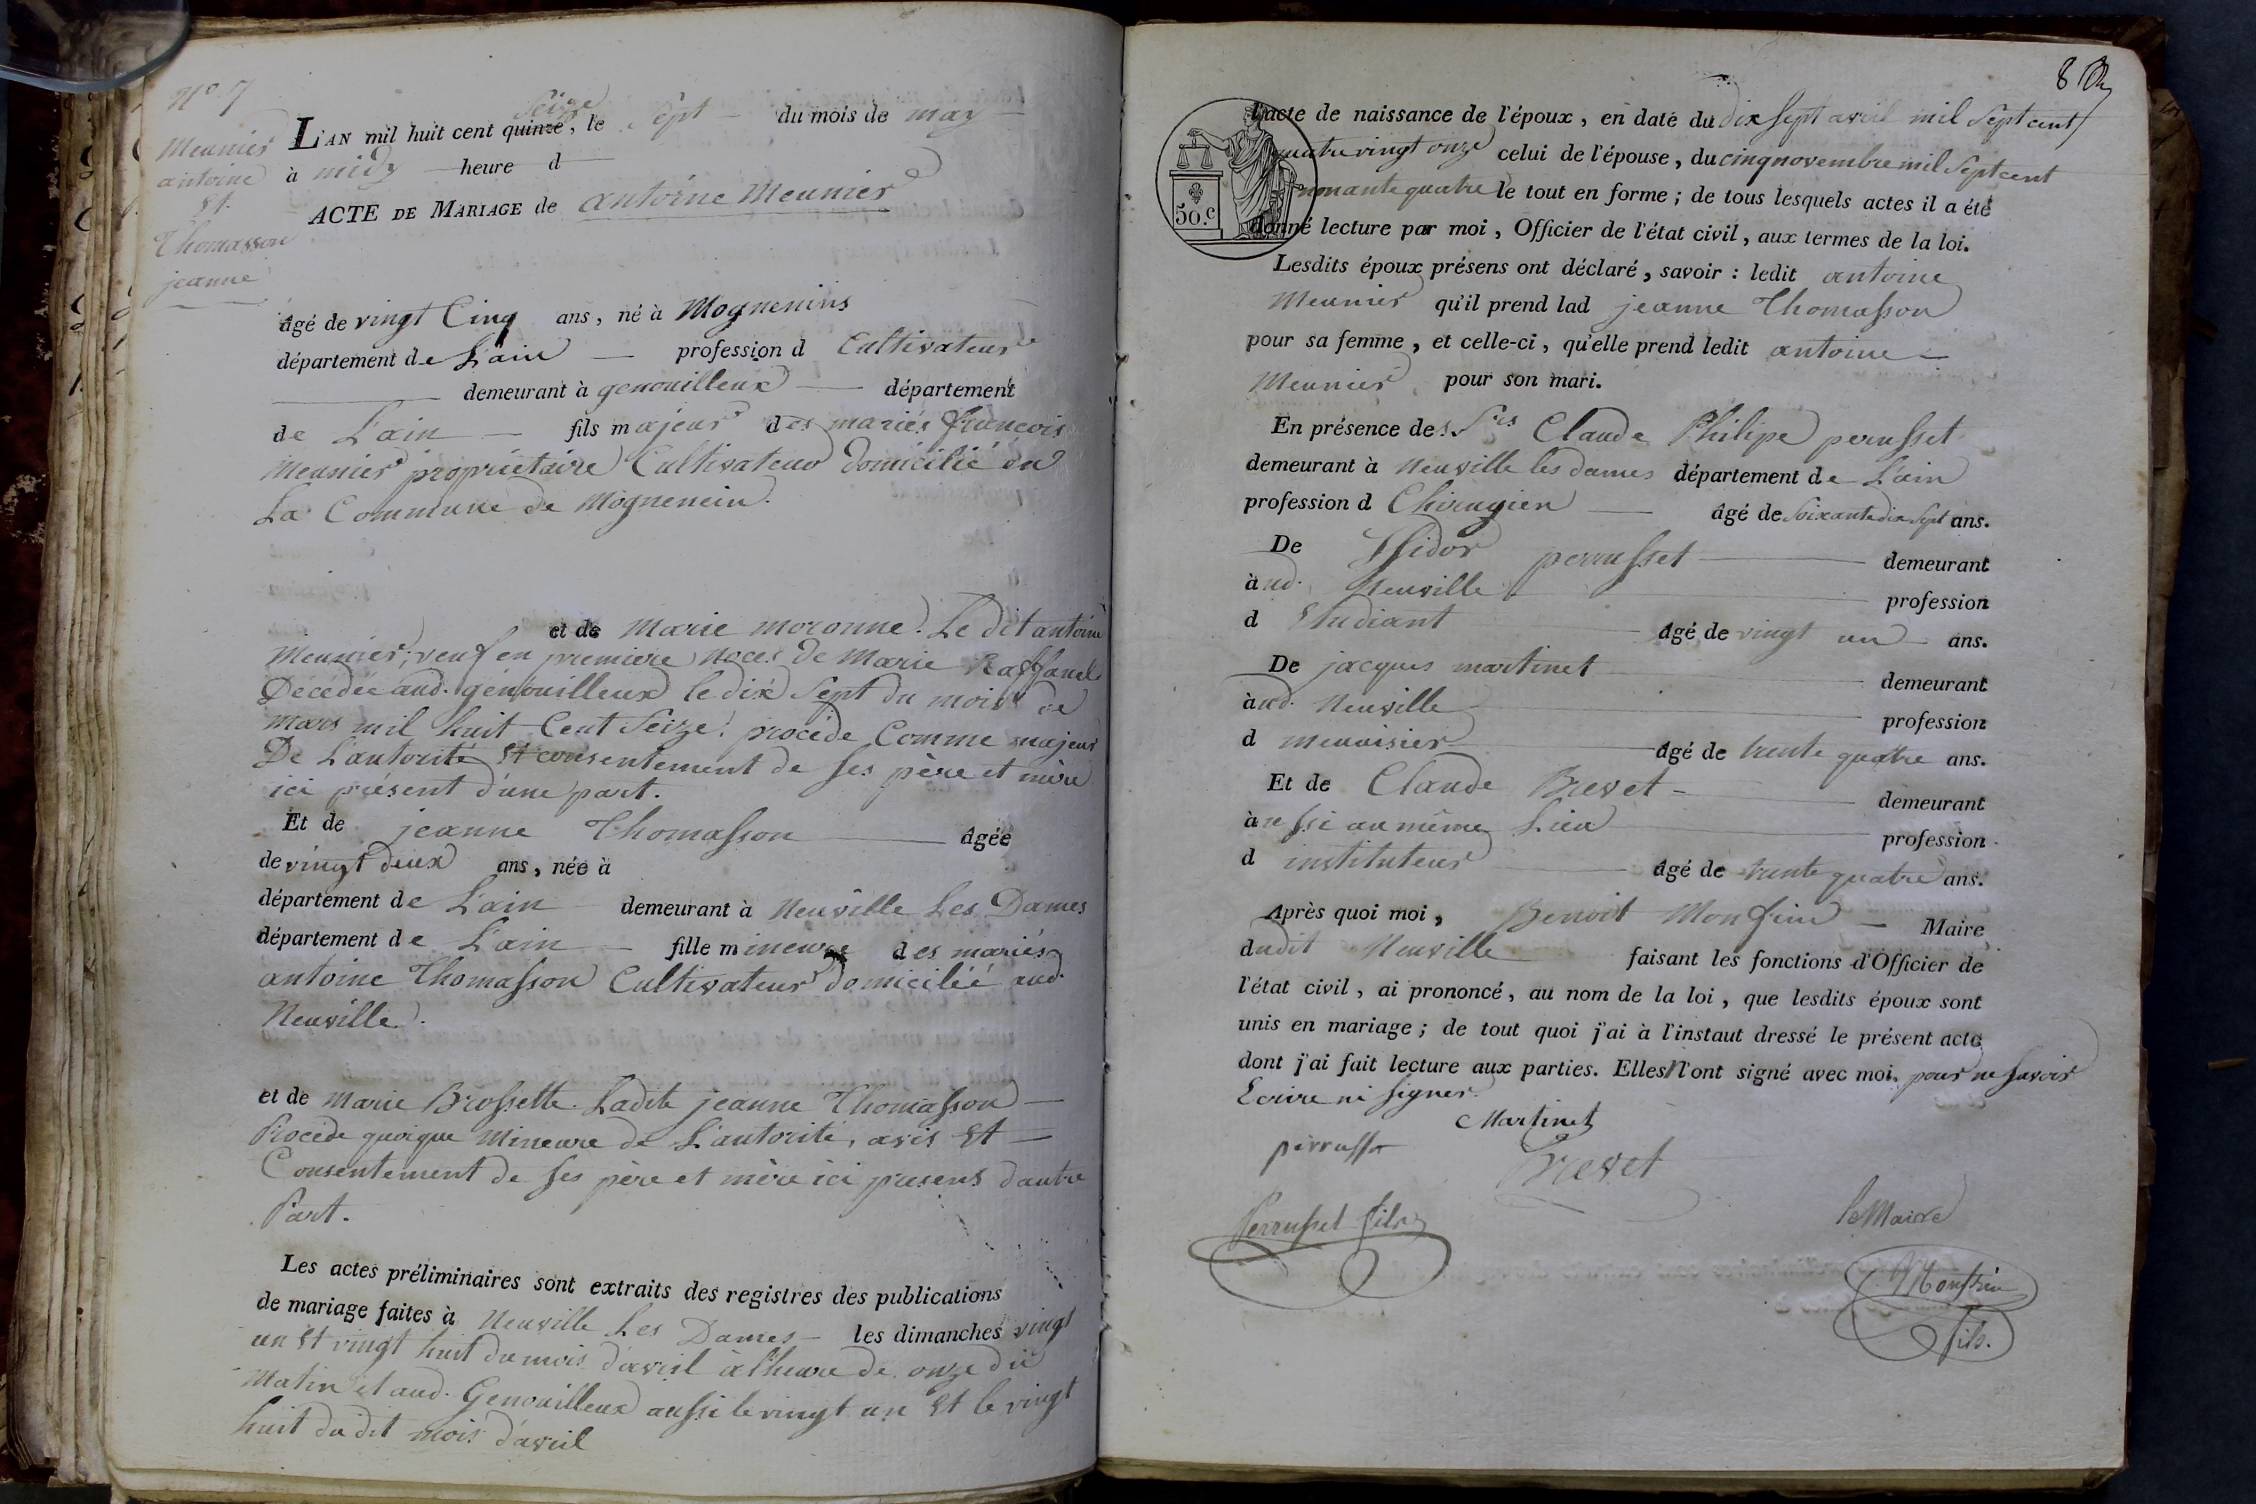 N.o 7
Meunier
antoine
Et
Thomasson
jeanne
Seize
L'AN mil huit cent quinze, le Sept du mois de may
à midy heure d
ACTE DE MARIAGE de antoine Meunier
âgé de vingt Cinq ans, né à Mognenins
département de L'ain profession d Cultivateur
demeurant à genouilleux département
de L'ain fils majeur des mariés françois
Meunier propriétaire Cultivateur domicilié en
La Commune de Mognenein.
et de Marie moronne. Le dit antoine
Meunier, veuf en premiere noces de Marie Raffanel
Décédée aud. génouilleux le dix Sept du mois de
mars mil huit Cent Seize! procéde Comme majeur
De L'autorité Et consentement de ses père et mère
ici présent d'une part.
Et de jeanne Thomasson âgée
de vingt deux ans, née à
département de L'ain demeurant à Neuville Les Dames
département de L'ain fille mineure des mariés
antoine Thomasson Cultivateur domicilié aud.
Neuville.
et de Marie Brossette. Ladite jeanne Thomasson
Procède quoique Mineure de L'autorité, avis Et
Consentement de ses père et mère ici presens d'autre
Part.
Les actes préliminaires sont extraits des registres des publications
de mariage faites à Neuville Les Dames les dimanches vingt
un Et vingt huit du mois d'avril à l'heure de onze du
Matin et aud. Genouilleux aussi le vingt un Et le vingt
huit du dit mois d'avril
8
l'acte de naissance de l'époux, en date du dix sept avril mil Sept cent
quatre vingt onze celui de l'épouse, du cinq novembre mil Sept cent
nonante quatre le tout en forme; de tous lesquels actes il a été
50.c
donné lecture par moi, Officier de l'état civil, aux termes de la loi.
Lesdits époux présens ont déclaré, savoir : ledit antoine
Meunier qu'il prend lad jeanne Thomasson
pour sa femme, et celle-ci, qu'elle prend ledit antoine
Meunier pour son mari.
En présence des Srs Claude Philipe perrusset
demeurant à Neuville les dames département de L'ain
profession d Chirugien âgé de Soixante dix Sept ans.
De Isidor perrusset demeurant
àud. Neuville profession
d Etudiant âgé de vingt un ans.
De jacques martinet demeurant
àud. Neuville profession
d menuisier âgé de trente quatre ans.
Et de Claude Brevet demeurant
àussi au même Lieu profession
d instituteur âgé de trente quatre ans.
Après quoi moi, Benoit Monfrin Maire
dudit Neuville faisant les fonctions d'Officier de
l'état civil, ai prononcé, au nom de la loi, que lesdits époux sont
unis en mariage; de tout quoi j'ai à l'instaut dressé le présent acte
dont j'ai fait lecture aux parties. Elles n'ont signé avec moi. pour ne savoir
Ecrire ni signer.
Martinet
perrusset
Brevet
Perrusset fils
le Maire
Monfrin
fils.